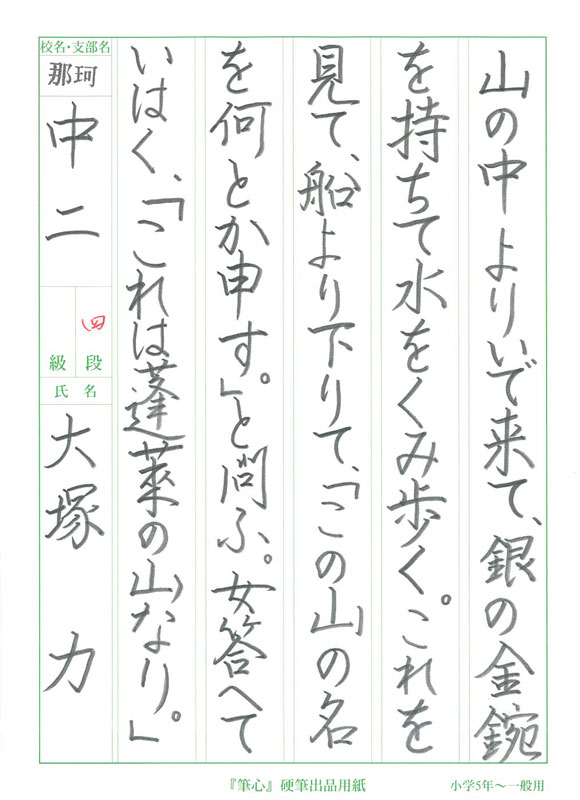 山の中よりいで来て、銀の金鋺
を持ちて水をくみ歩く。これを
見て、船より下りて、「この山の名
を何とか申す。」と問ふ。女答へて
いはく、「これは蓬莱の山なり。」
校名・支部名
那珂
中二
四
段
級
氏名
大塚 力
『筆心』硬筆出品用紙
小学5年～一般用